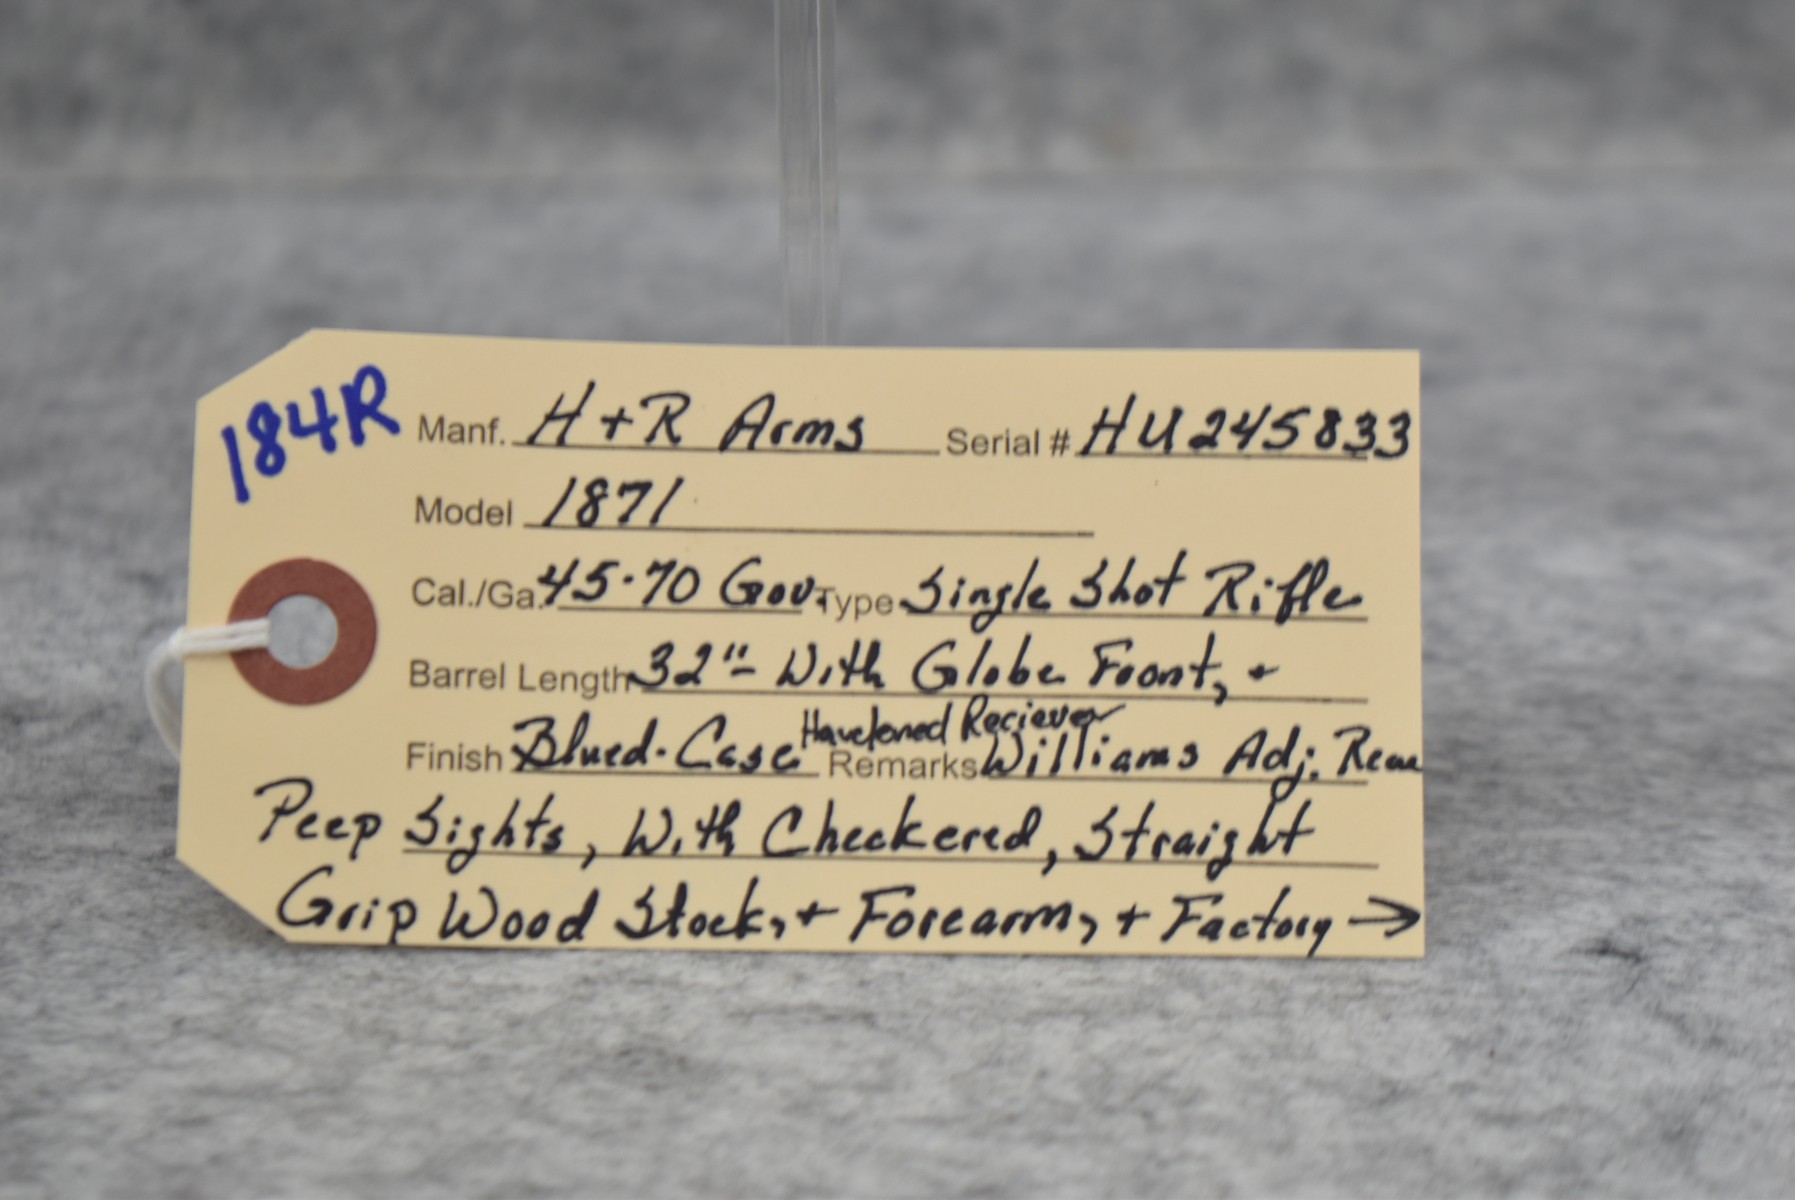 184R
Manf. H+R Arms Serial # HU245833
Model 1871
Cal./Ga. 45-70 Gov. Type Single Shot Rifle
Barrel Length 32" - With Globe Front, +
Finish Blued-Case Hardened Reciever Remarks Williams Adj. Rear
Peep Sights, With Checkered, Straight
Grip Wood Stock, + Forearm, + Factory →